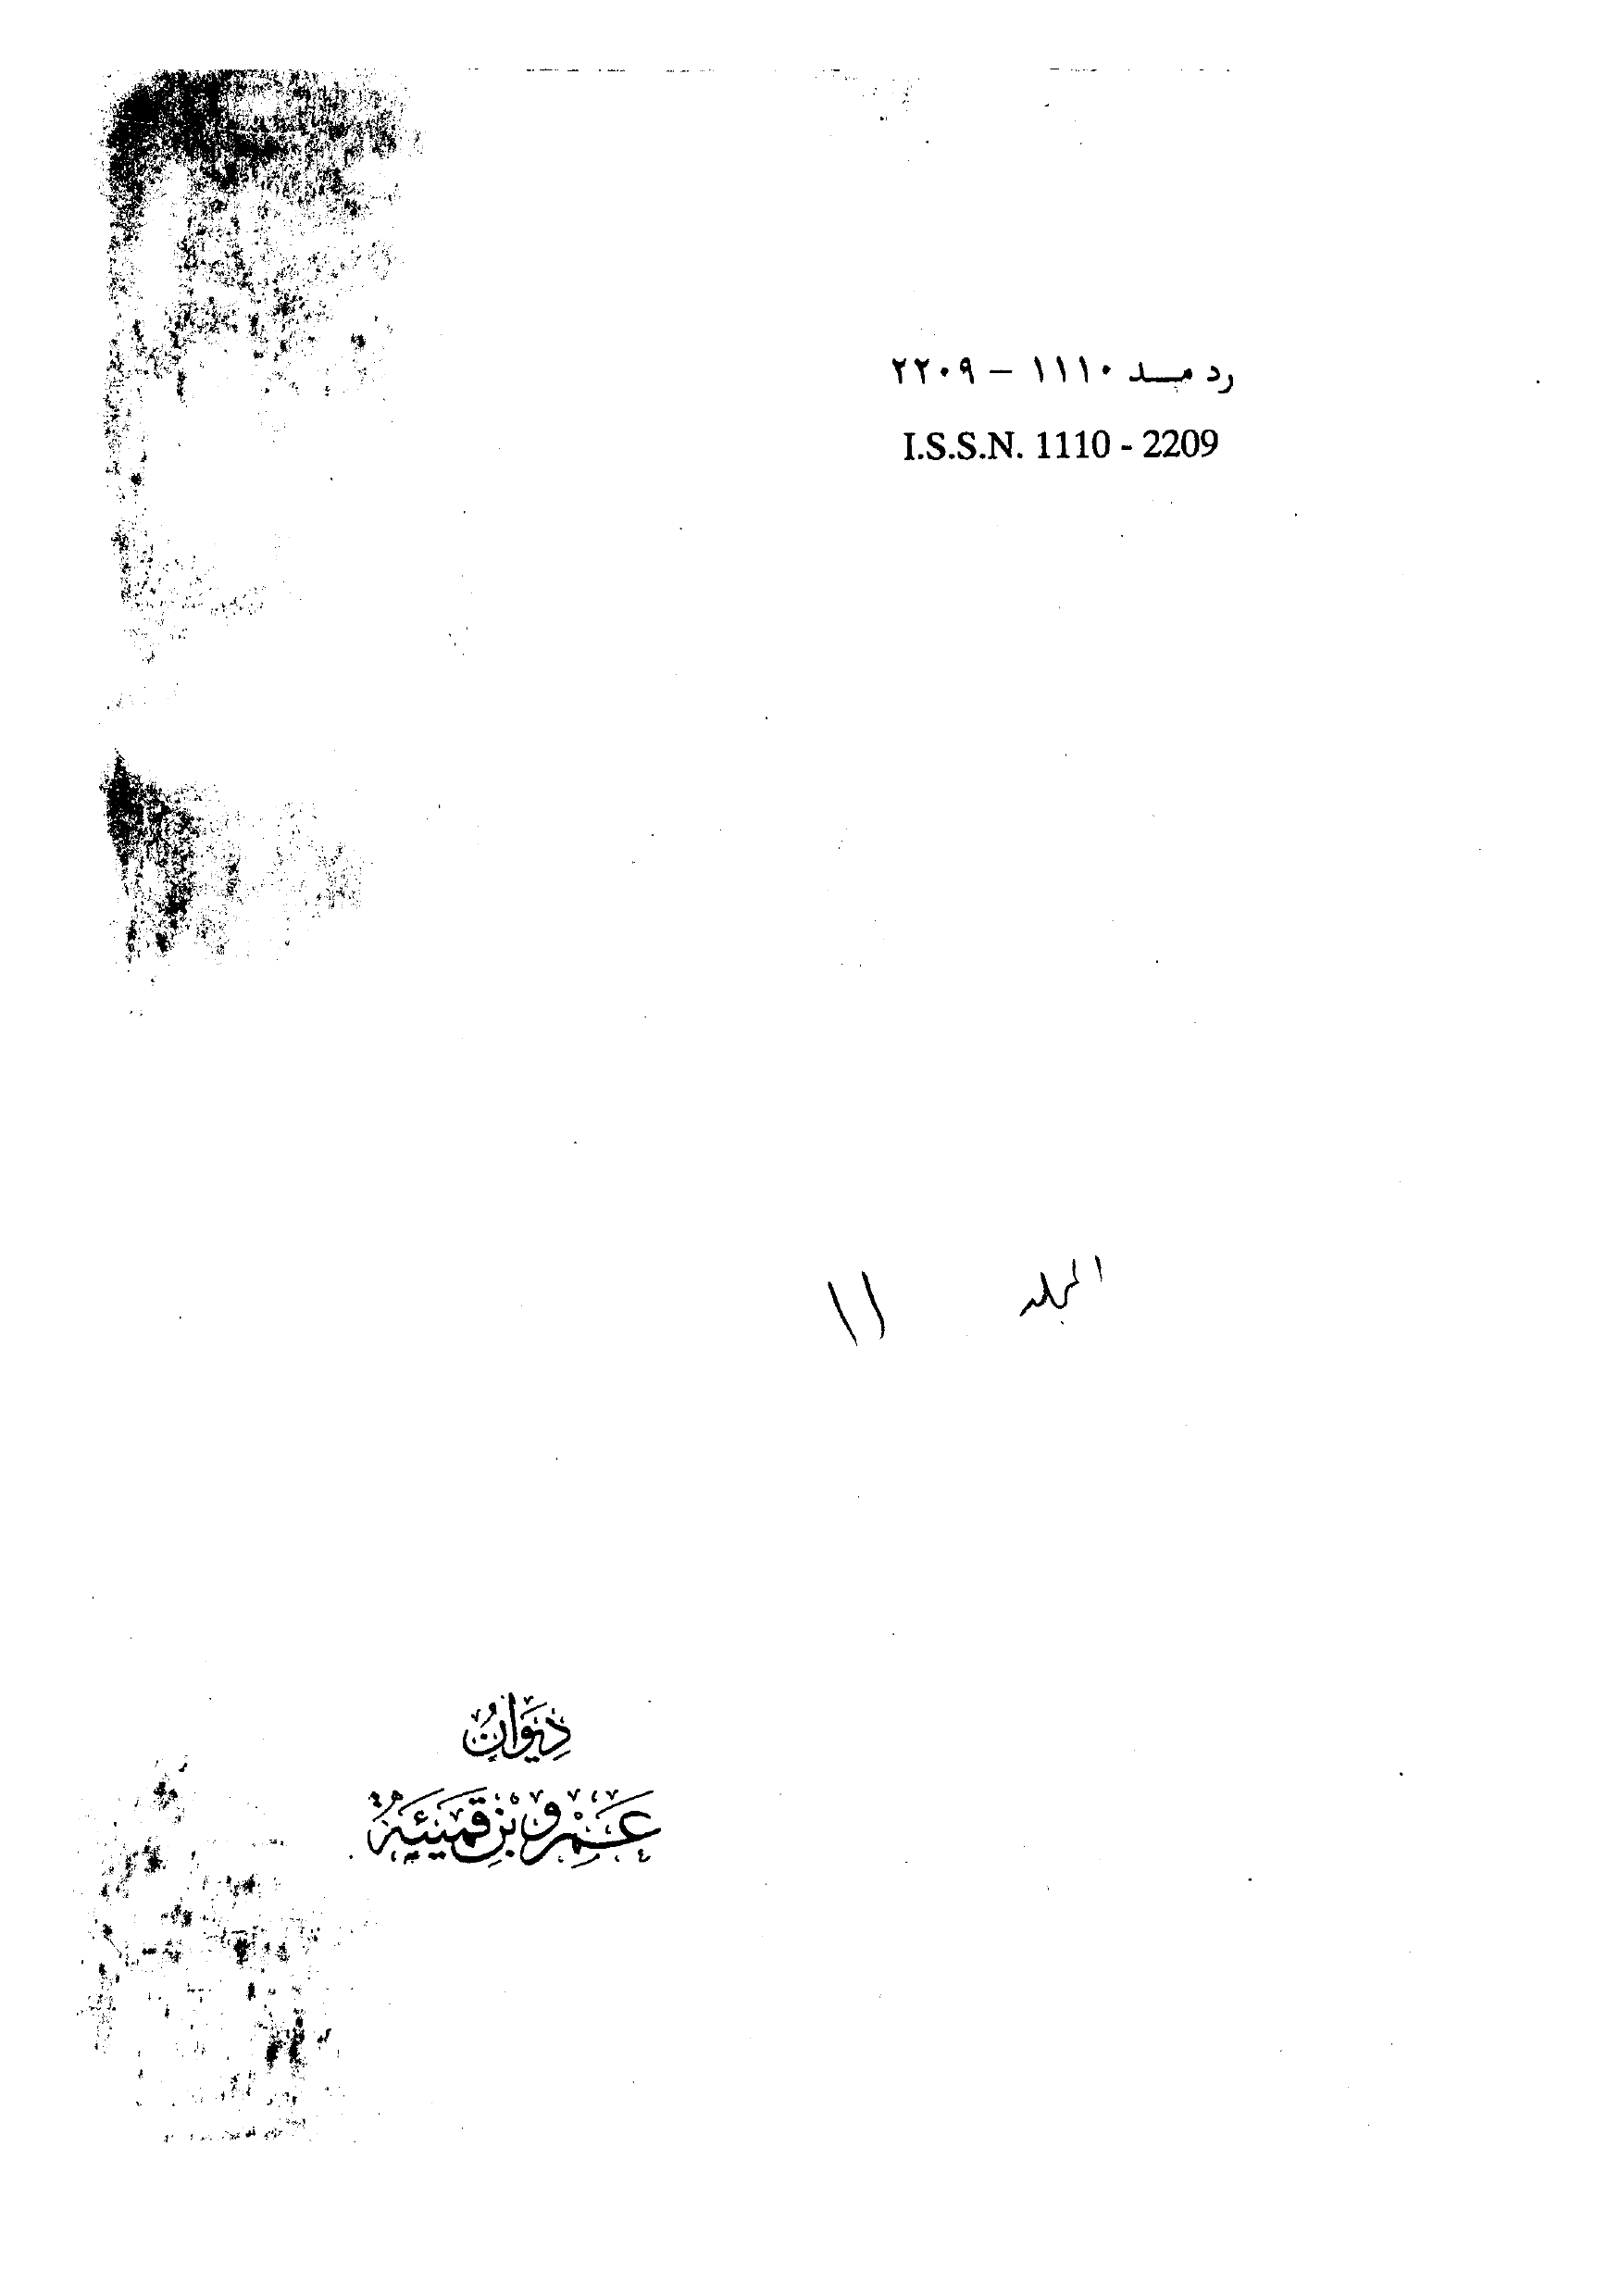 رد مـد ١١١٠ – ٢٢٠٩
I.S.S.N. 1110 - 2209
المجلد ١١
دِيوَانُ
عَمْرِو بْنِ قَمِيئَةَ